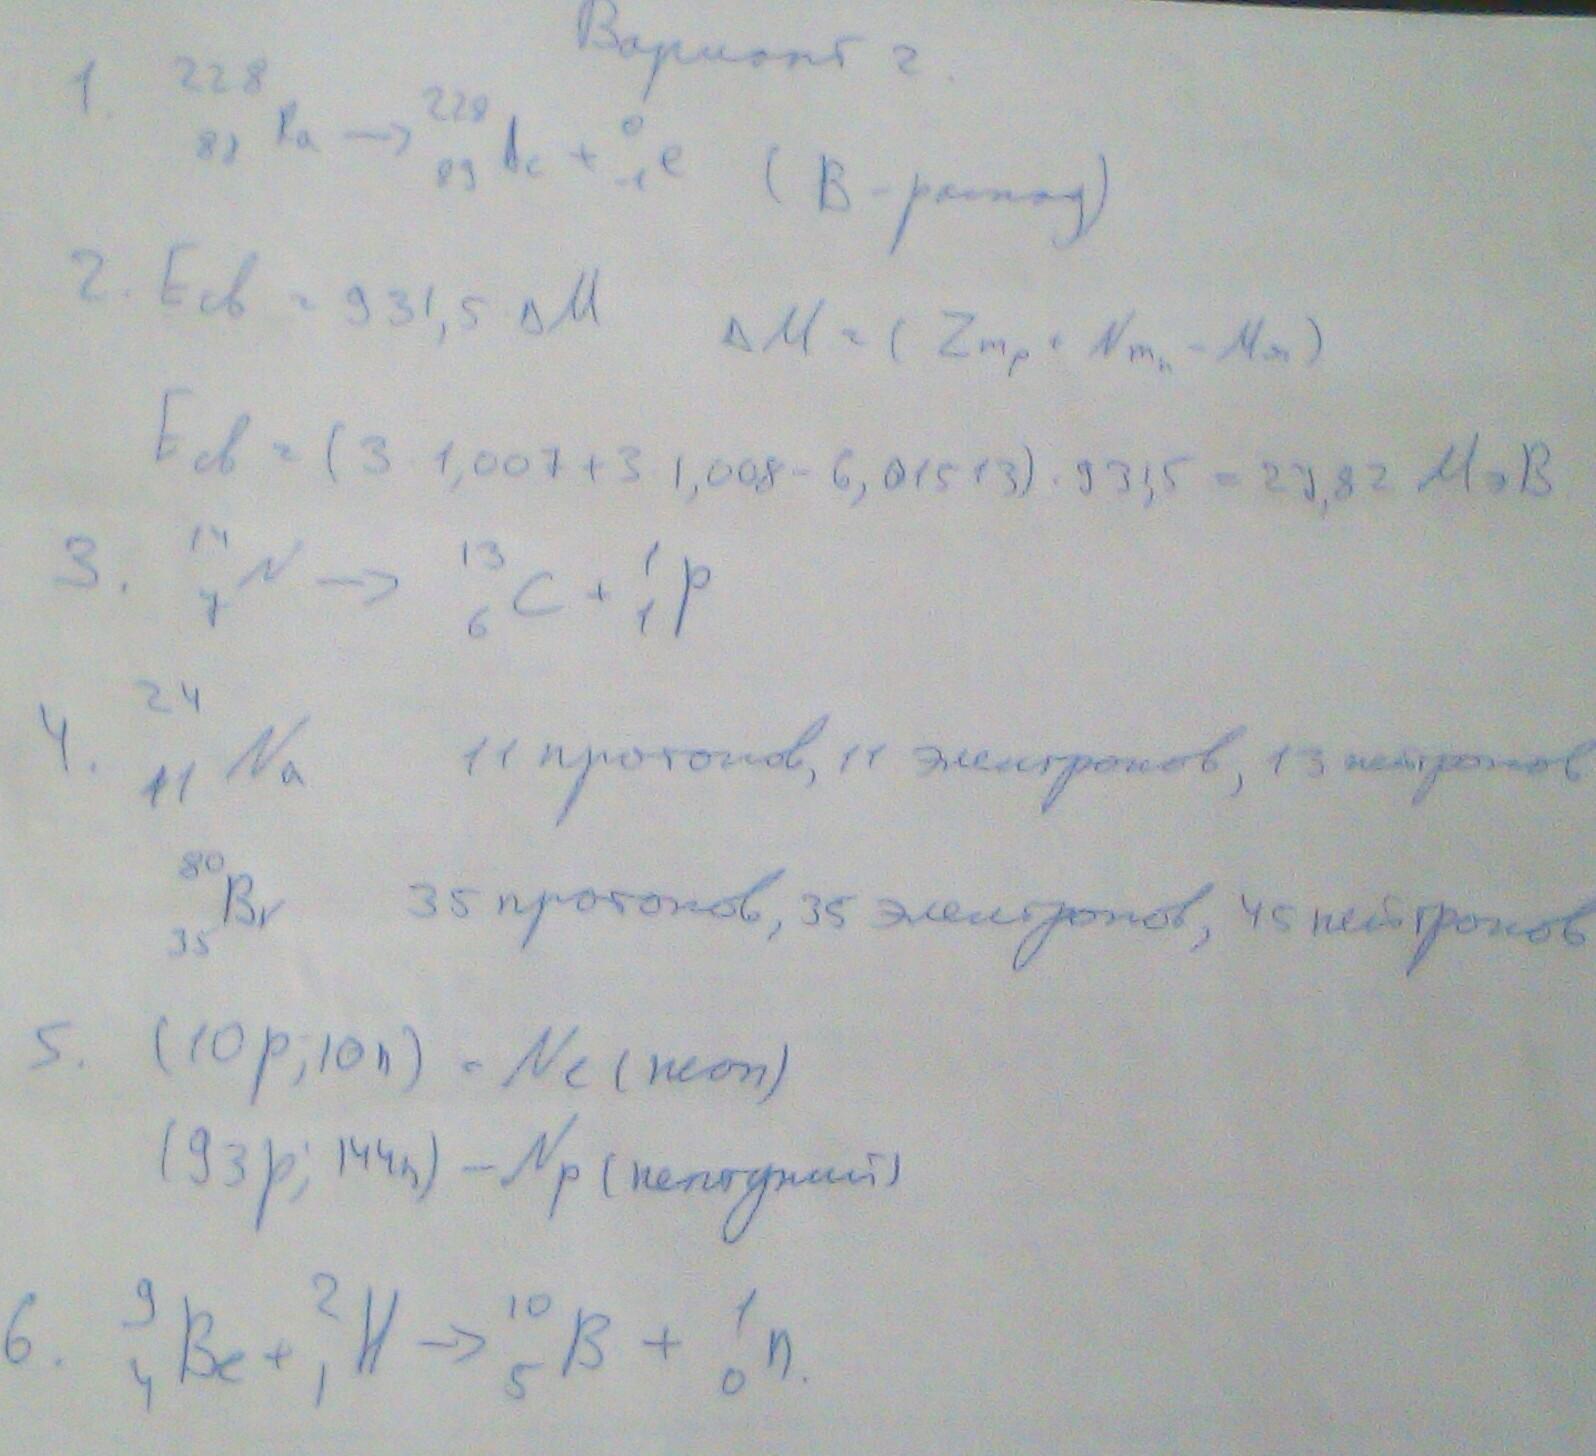 Вариант 2.
1. ²²⁸₈₈Ra → ²²⁸₈₉Ac + ⁰₋₁e (В-распад)
2. Eсв = 931,5 ΔM ΔM = (Zmp + Nmn - Mя)
Eсв = (3·1,007+3·1,008-6,01513)·931,5 = 27,82 МэВ
3. ¹⁴₇N → ¹³₆C + ¹₁p
4. ²⁴₁₁Na 11 протонов, 11 электронов, 13 нейтронов
⁸⁰₃₅Br 35 протонов, 35 электронов, 45 нейтронов
5. (10p; 10n) - Ne (неон)
(93p; 144n) - Np (нептуний)
6. ⁹₄Be + ²₁H → ¹⁰₅B + ¹₀n.